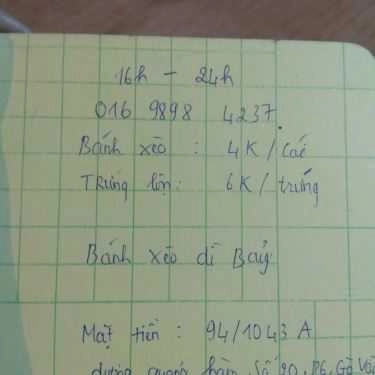 16h - 24h
016 9898 4237.
Bánh xèo : 4K / Cái
Trứng lộn : 6K / trứng
Bánh xèo dì Bảy
Mặt tiền : 94/1043 A
đường quang hàm, Số 20, P6, Gò Vấ